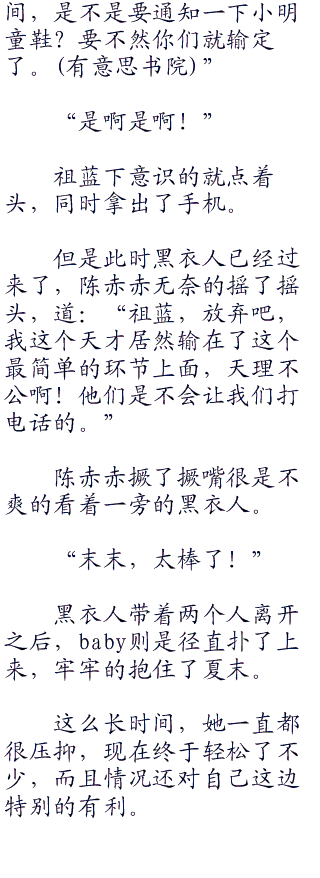 间，是不是要通知一下小明
童鞋？要不然你们就输定
了。(有意思书院)”
“是啊是啊！”
祖蓝下意识的就点着
头，同时拿出了手机。
但是此时黑衣人已经过
来了，陈赤赤无奈的摇了摇
头，道：“祖蓝，放弃吧，
我这个天才居然输在了这个
最简单的环节上面，天理不
公啊！他们是不会让我们打
电话的。”
陈赤赤撅了撅嘴很是不
爽的看着一旁的黑衣人。
“末末，太棒了！”
黑衣人带着两个人离开
之后，baby则是径直扑了上
来，牢牢的抱住了夏末。
这么长时间，她一直都
很压抑，现在终于轻松了不
少，而且情况还对自己这边
特别的有利。